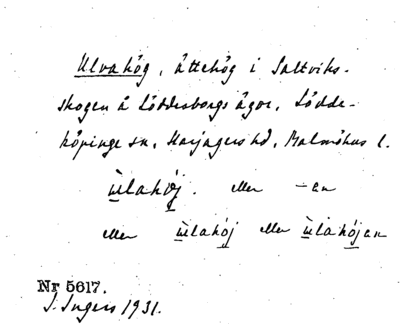 Ulvahög, ättehög i Saltviks-
skogen å Löddesborgs ägor, Lödde-
köpinge sn, Harjagers hd, Malmöhus l.
ùlahöj. eller -en
eller ùlahöj eller ùlahöjen
Nr 5617.
I. Ingers 1931.